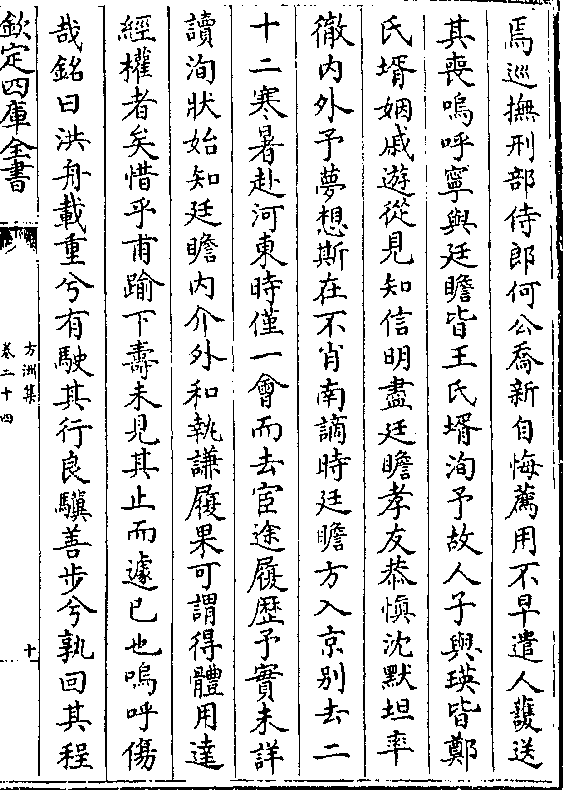 焉巡撫刑部侍郎何公喬新自悔薦用不早遣人護送
其喪嗚呼寧與廷瞻皆王氏壻洵予故人子與瑛皆鄭
氏壻姻戚遊從見知信明盡廷瞻孝友恭慎沈默坦率
徹内外予夢想斯在不肖南謫時廷瞻方入京别去二
十二寒暑赴河東時僅一會而去宦途履歴予實未詳
讀洵狀始知廷瞻内介外和執謙履果可謂得體用達
經權者矣惜乎甫踰下壽未見其止而遽已也嗚呼傷
哉銘曰洪舟載重兮有駛其行良驥善步兮孰回其程
欽定四庫全書
方洲集
卷二十四
十